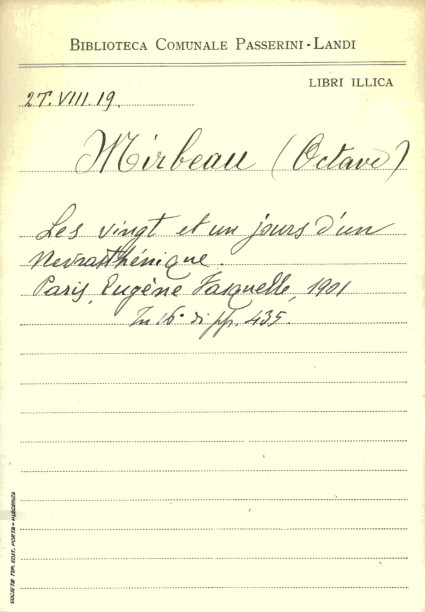 BIBLIOTECA COMUNALE PASSERINI-LANDI
LIBRI ILLICA
27.VIII.19.
Mirbeau (Octave)
Les vingt et un jours d'un
nevrasthénique.
Paris, Eugène Fasquelle, 1901
In 16° di pp. 435.
SOCIETÀ TIP. EDIT. PORTA-PIACENZA